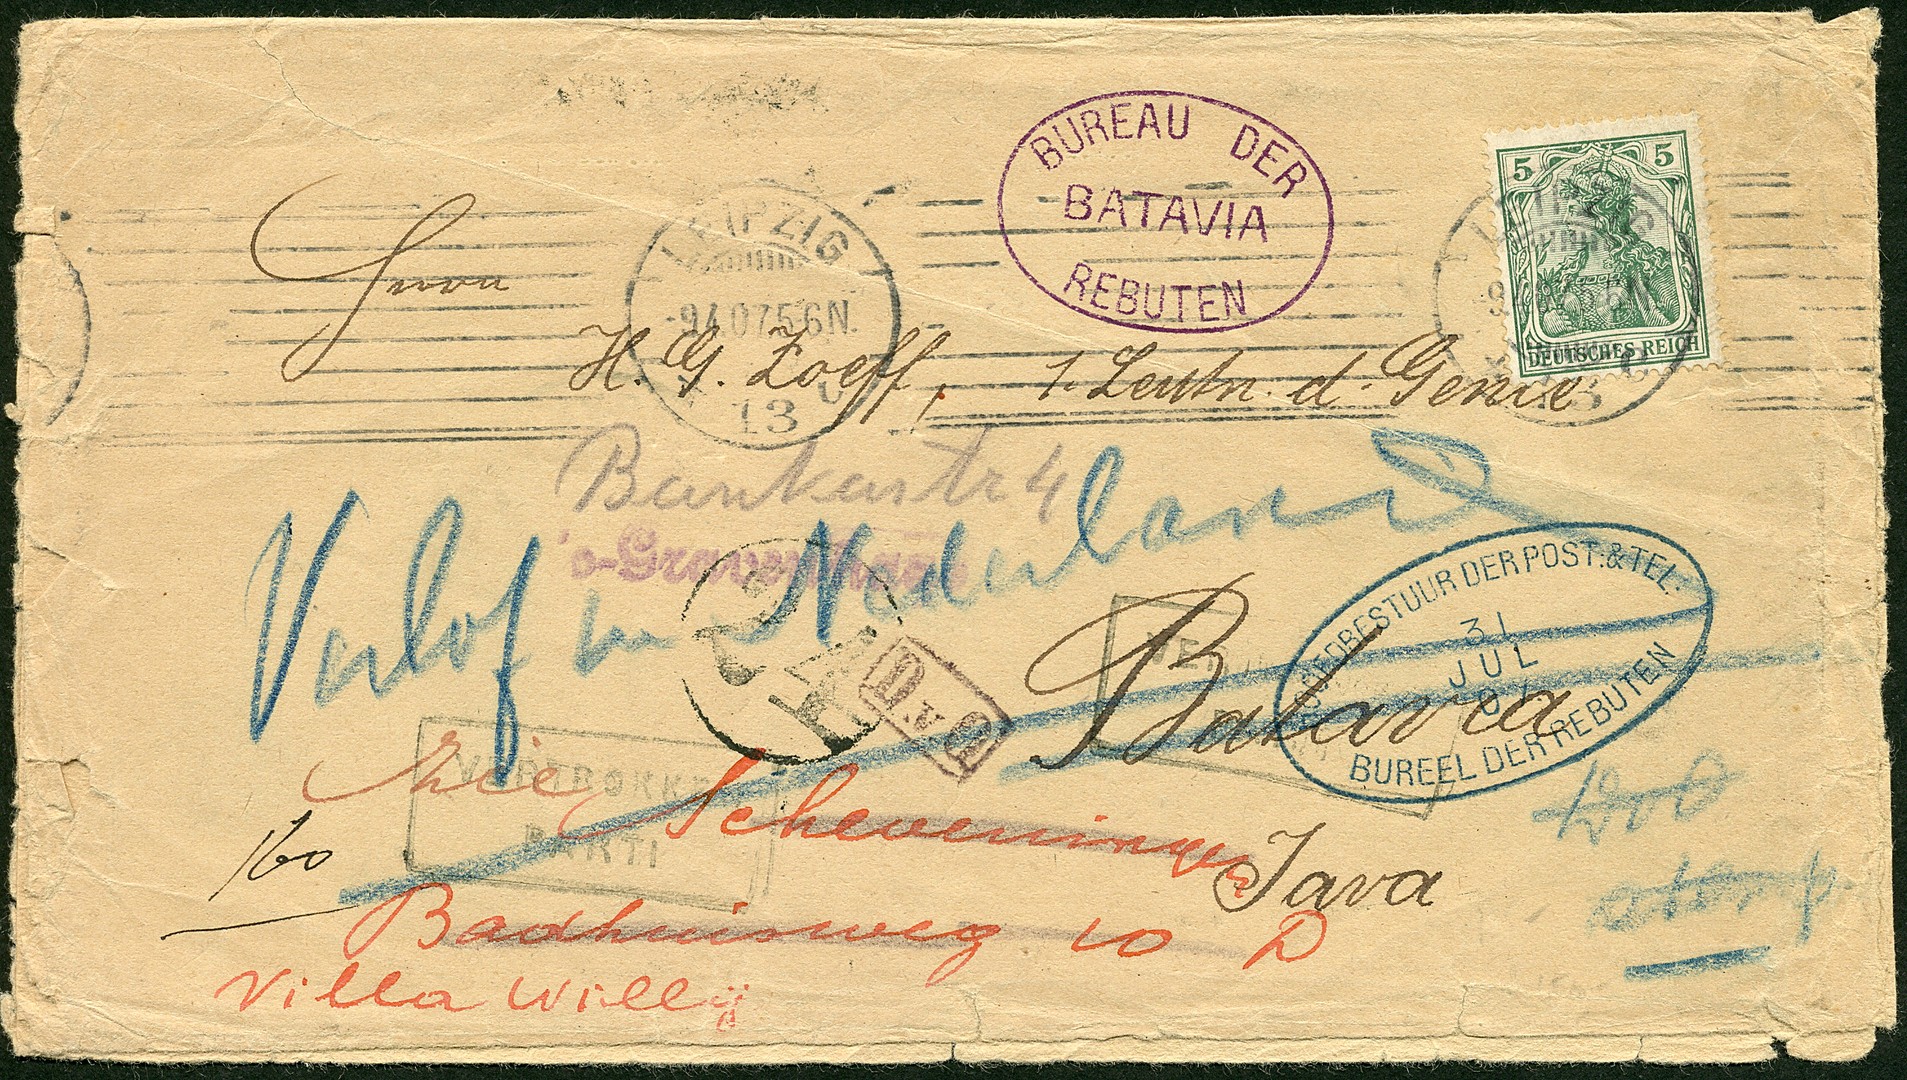 BUREAU DER
BATAVIA
REBUTEN
5 5
DEUTSCHES REICH
LEIPZIG
-9.4.07.5-6N.
13
Herrn
H. G. Zoeff, 1. Leutn. d. Genie
Bankastr 4
's-Gravenhage
Verlof in Nederland
Batavia
Java
HOOFDBESTUUR DER POST.& TEL.
31
JUL
07
BUREEL DER REBUTEN
D.v.O
VERTROKKEN
PARTI
Scheveningen
Badhuisweg 10 D
Villa Willy
160
DvO